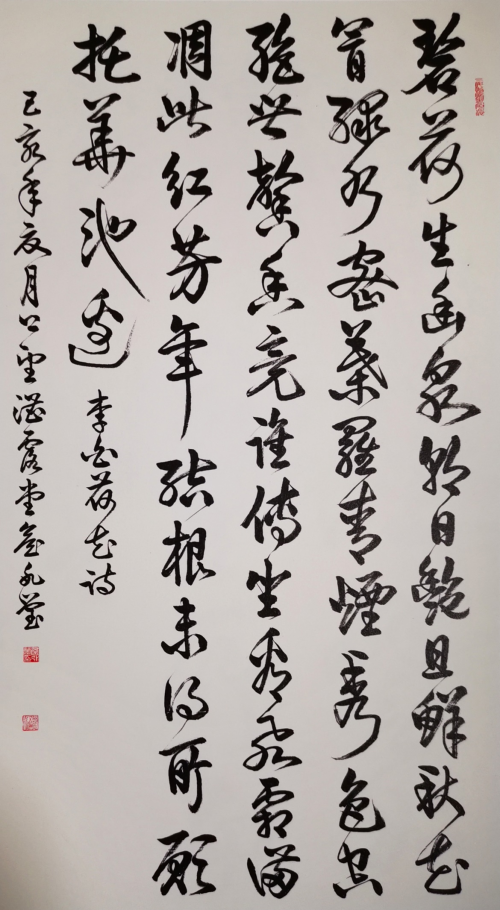 碧荷生幽泉朝日艷且鮮秋花
冒綠水密葉羅青煙秀色空
絕世馨香竟誰傳坐看飛霜滿
凋此紅芳年結根未得所願
托華池邊 李白荷花詩
己亥年夏月